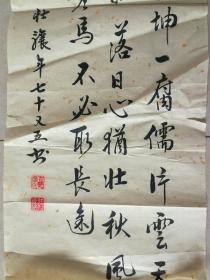 坤一腐儒片雲天
落日心猶壯秋風
馬不必取長途
年七十又五书